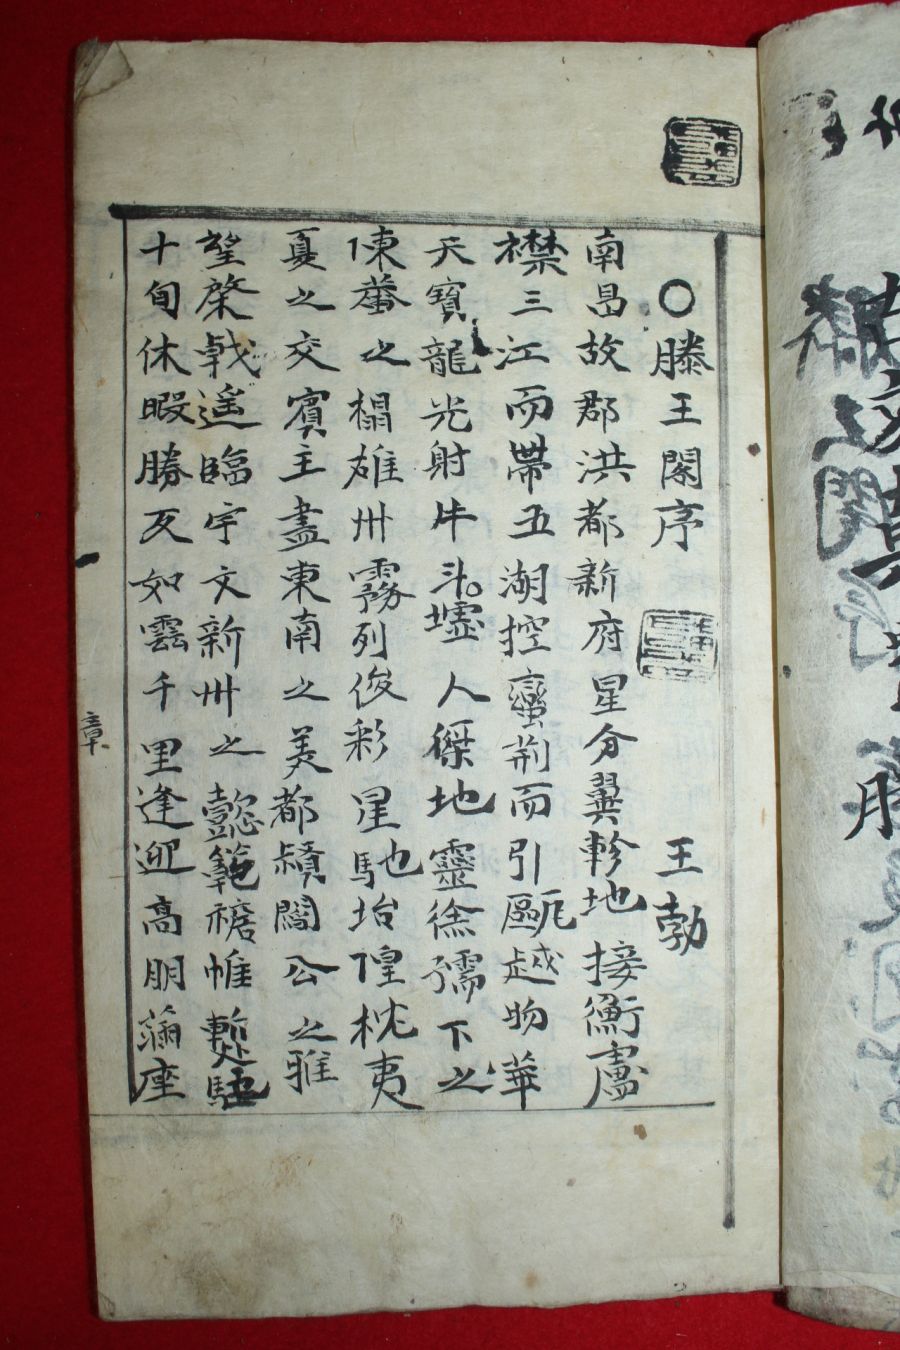 ○滕王閣序 王勃
南昌故郡洪都新府星分翼軫地接衡廬
襟三江而帶五湖控蠻荊而引甌越物華
天寶龍光射牛斗墟人傑地靈徐孺下之
陳蕃之榻雄州霧列俊彩星馳坮隍枕夷
夏之交賓主盡東南之美都督閻公之雅
望棨戟遙臨宇文新州之懿範襜帷暫駐
十旬休暇勝友如雲千里逢迎高朋滿座
章